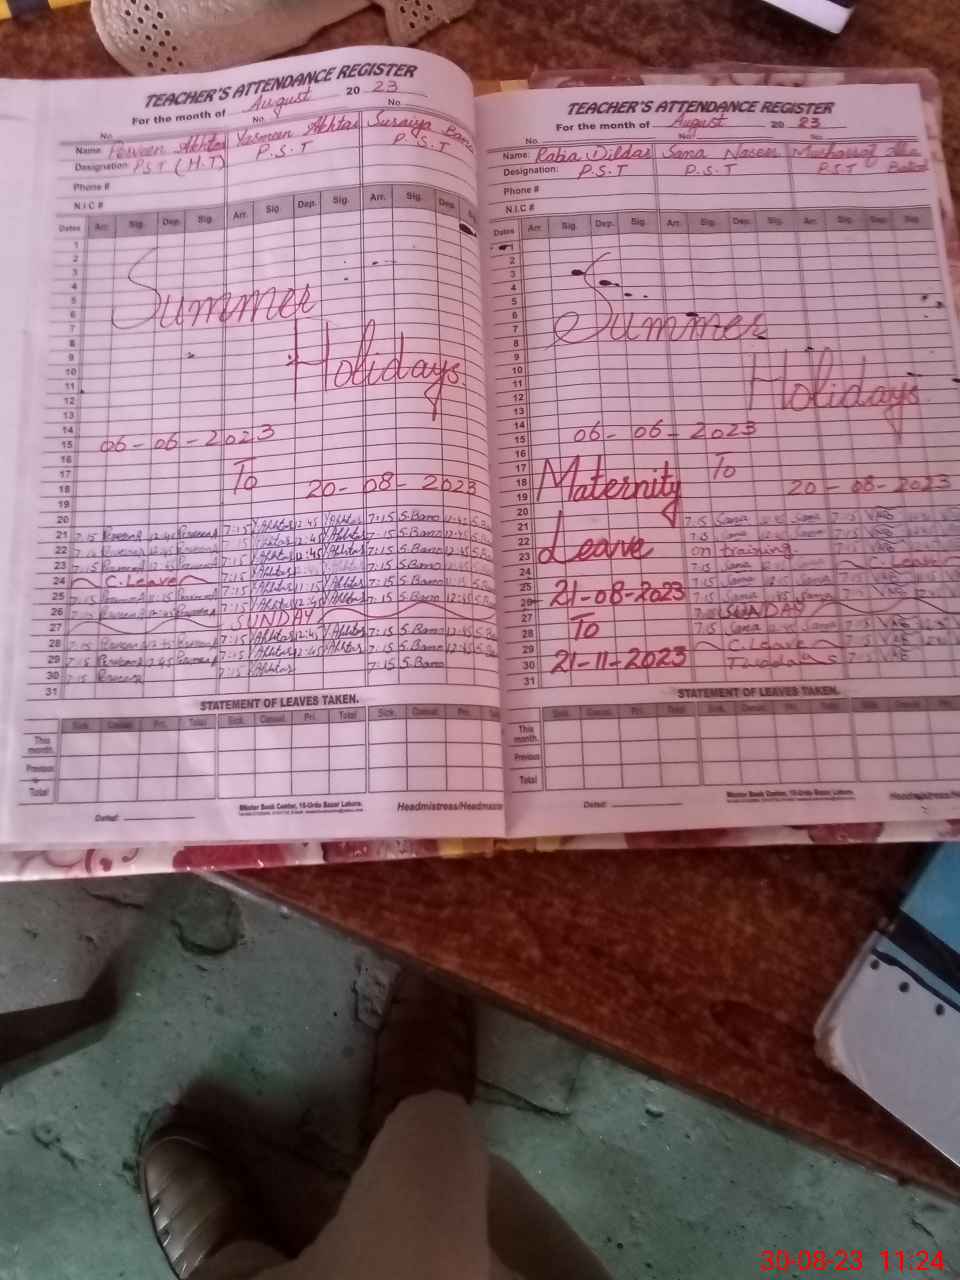 TEACHER'S ATTENDANCE REGISTER
For the month of August 20 23
No. No. No.
Name: Perveen Akhtar Yasmeen Akhtar Suraiya Bano
Designation: PST (H.T) P.S.T P.S.T
Phone #
N.I.C #
Dates Arr. Sig. Dep. Sig. Arr. Sig. Dep. Sig. Arr. Sig. Dep.
1
2
3
4
5
6
7
8
9
10
11
12
13
14
15
16
17
18
19
20
Summer
Holidays
06-06-2023
To
20-08-2023
21 7:15 Perveen 12:45 Perveen 7:15 Y.Akhtar 12:45 Y.Akhtar 7:15 S.Bano 12:45
22 7:15 Perveen 12:45 Perveen 7:15 Y.Akhtar 12:45 Y.Akhtar 7:15 S.Bano 12:45
23 7:15 Perveen 12:45 Perveen 7:15 Y.Akhtar 12:45 Y.Akhtar 7:15 S.Bano 12:45
24 C.Leave 7:15 Y.Akhtar 7:15 S.Bano
25 7:15 Perveen 11:15 Perveen 7:15 Y.Akhtar 11:15 Y.Akhtar 7:15 S.Bano 11:15
26 7:15 Perveen 12:45 Perveen 7:15 Y.Akhtar 12:45 Y.Akhtar 7:15 S.Bano 12:45
27 SUNDAY
28 7:15 Perveen 12:45 Perveen 7:15 Y.Akhtar 12:45 Y.Akhtar 7:15 S.Bano 12:45
29 7:15 Perveen 12:45 Perveen 7:15 Y.Akhtar 12:45 Y.Akhtar 7:15 S.Bano 12:45
30 7:15 Perveen 7:15 Y.Akhtar 7:15 S.Bano
31
STATEMENT OF LEAVES TAKEN.
Sick. Casual. Pri. Total Sick. Casual. Pri. Total Sick. Casual. Pri.
This month.
Previous
Total
Dated:
Master Book Center, 15-Urdu Bazar Lahore.
Headmistress/Headmaster
TEACHER'S ATTENDANCE REGISTER
For the month of August 20 23
No. No. No.
Name: Rabia Dildar Sana Naseer Musharraf
Designation: P.S.T P.S.T P.S.T
Phone #
N.I.C #
Dates Arr. Sig. Dep. Sig. Arr. Sig. Dep. Sig. Arr. Sig. Dep. Sig.
1
2
3
4
5
6
7
8
9
10
11
12
13
14
15
16
17
18
19
20
21
22
23
24
25
26
27
28
29
30
31
Summer
Holidays
06-06-2023
To
20-08-2023
Maternity
Leave
21-08-2023
To
21-11-2023
7:15 Sana
7:15 Sana
on training
7:15 Sana C.Leave
7:15 Sana
7:15 Sana
SUNDAY
7:15 Sana
C.Leave
STATEMENT OF LEAVES TAKEN.
Sick. Casual. Pri. Total Sick. Casual. Pri. Total Sick Casual
This month.
Previous
Total
Dated:
Master Book Center, 15-Urdu Bazar Lahore.
30-08-23 11:24